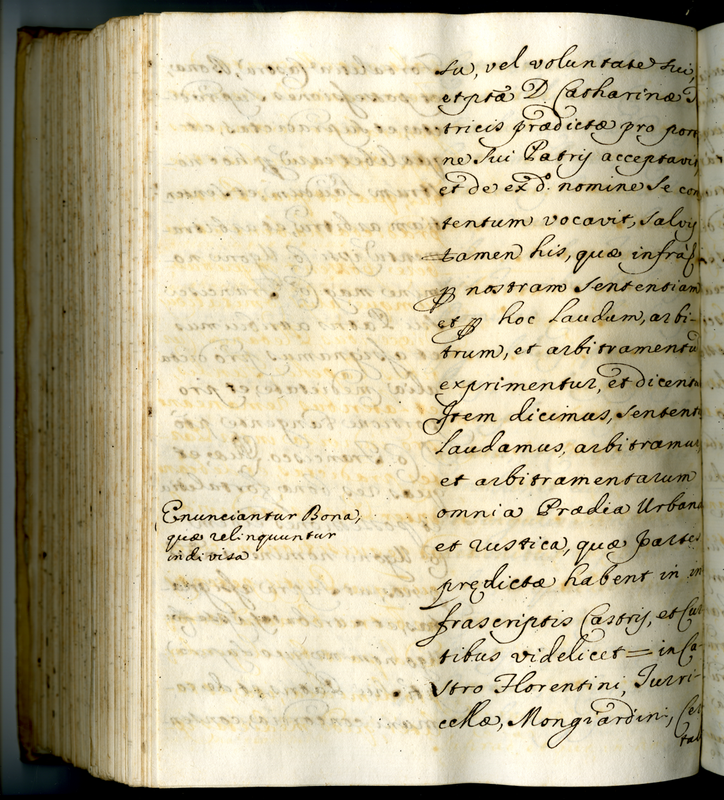 sa, vel voluntate sui,
et ptã D. Catharinæ
tricis prædictæ pro por
ne sui Patrij acceptavit,
et de ea d.º nomine se con
tentum vocavit, salvis
tamen his, quæ infra
nostram sententiam
et hoc laudum, arbi-
trum, et arbitramentũ
exprimentur, et dicent
Item dicimus, sentent
laudamus, arbitramur
et arbitramentarum
omnia Prædia Urbana
et rustica, quæ Partes
prędictæ habent in in
frascriptis Castrij, et Cur
tibus videlicet = in Ca-
stro Florentini, Turri-
cellæ, Mongiardini, Cer
tal
Enunciantur Bona,
quæ relinquuntur
indivisa